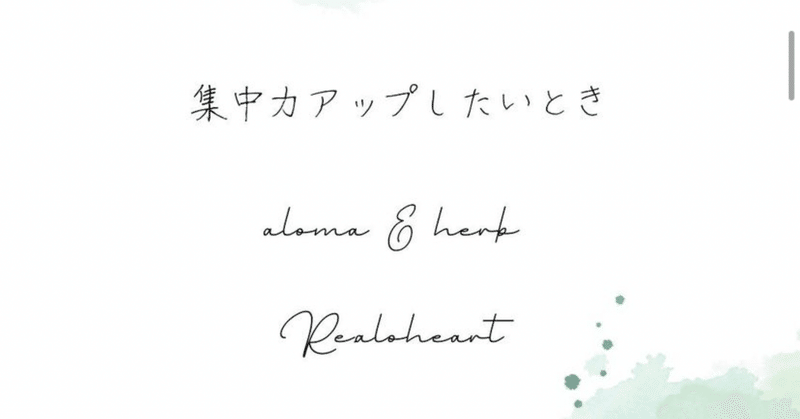 集中力アップしたいとき
aloma & herb
Realoheart